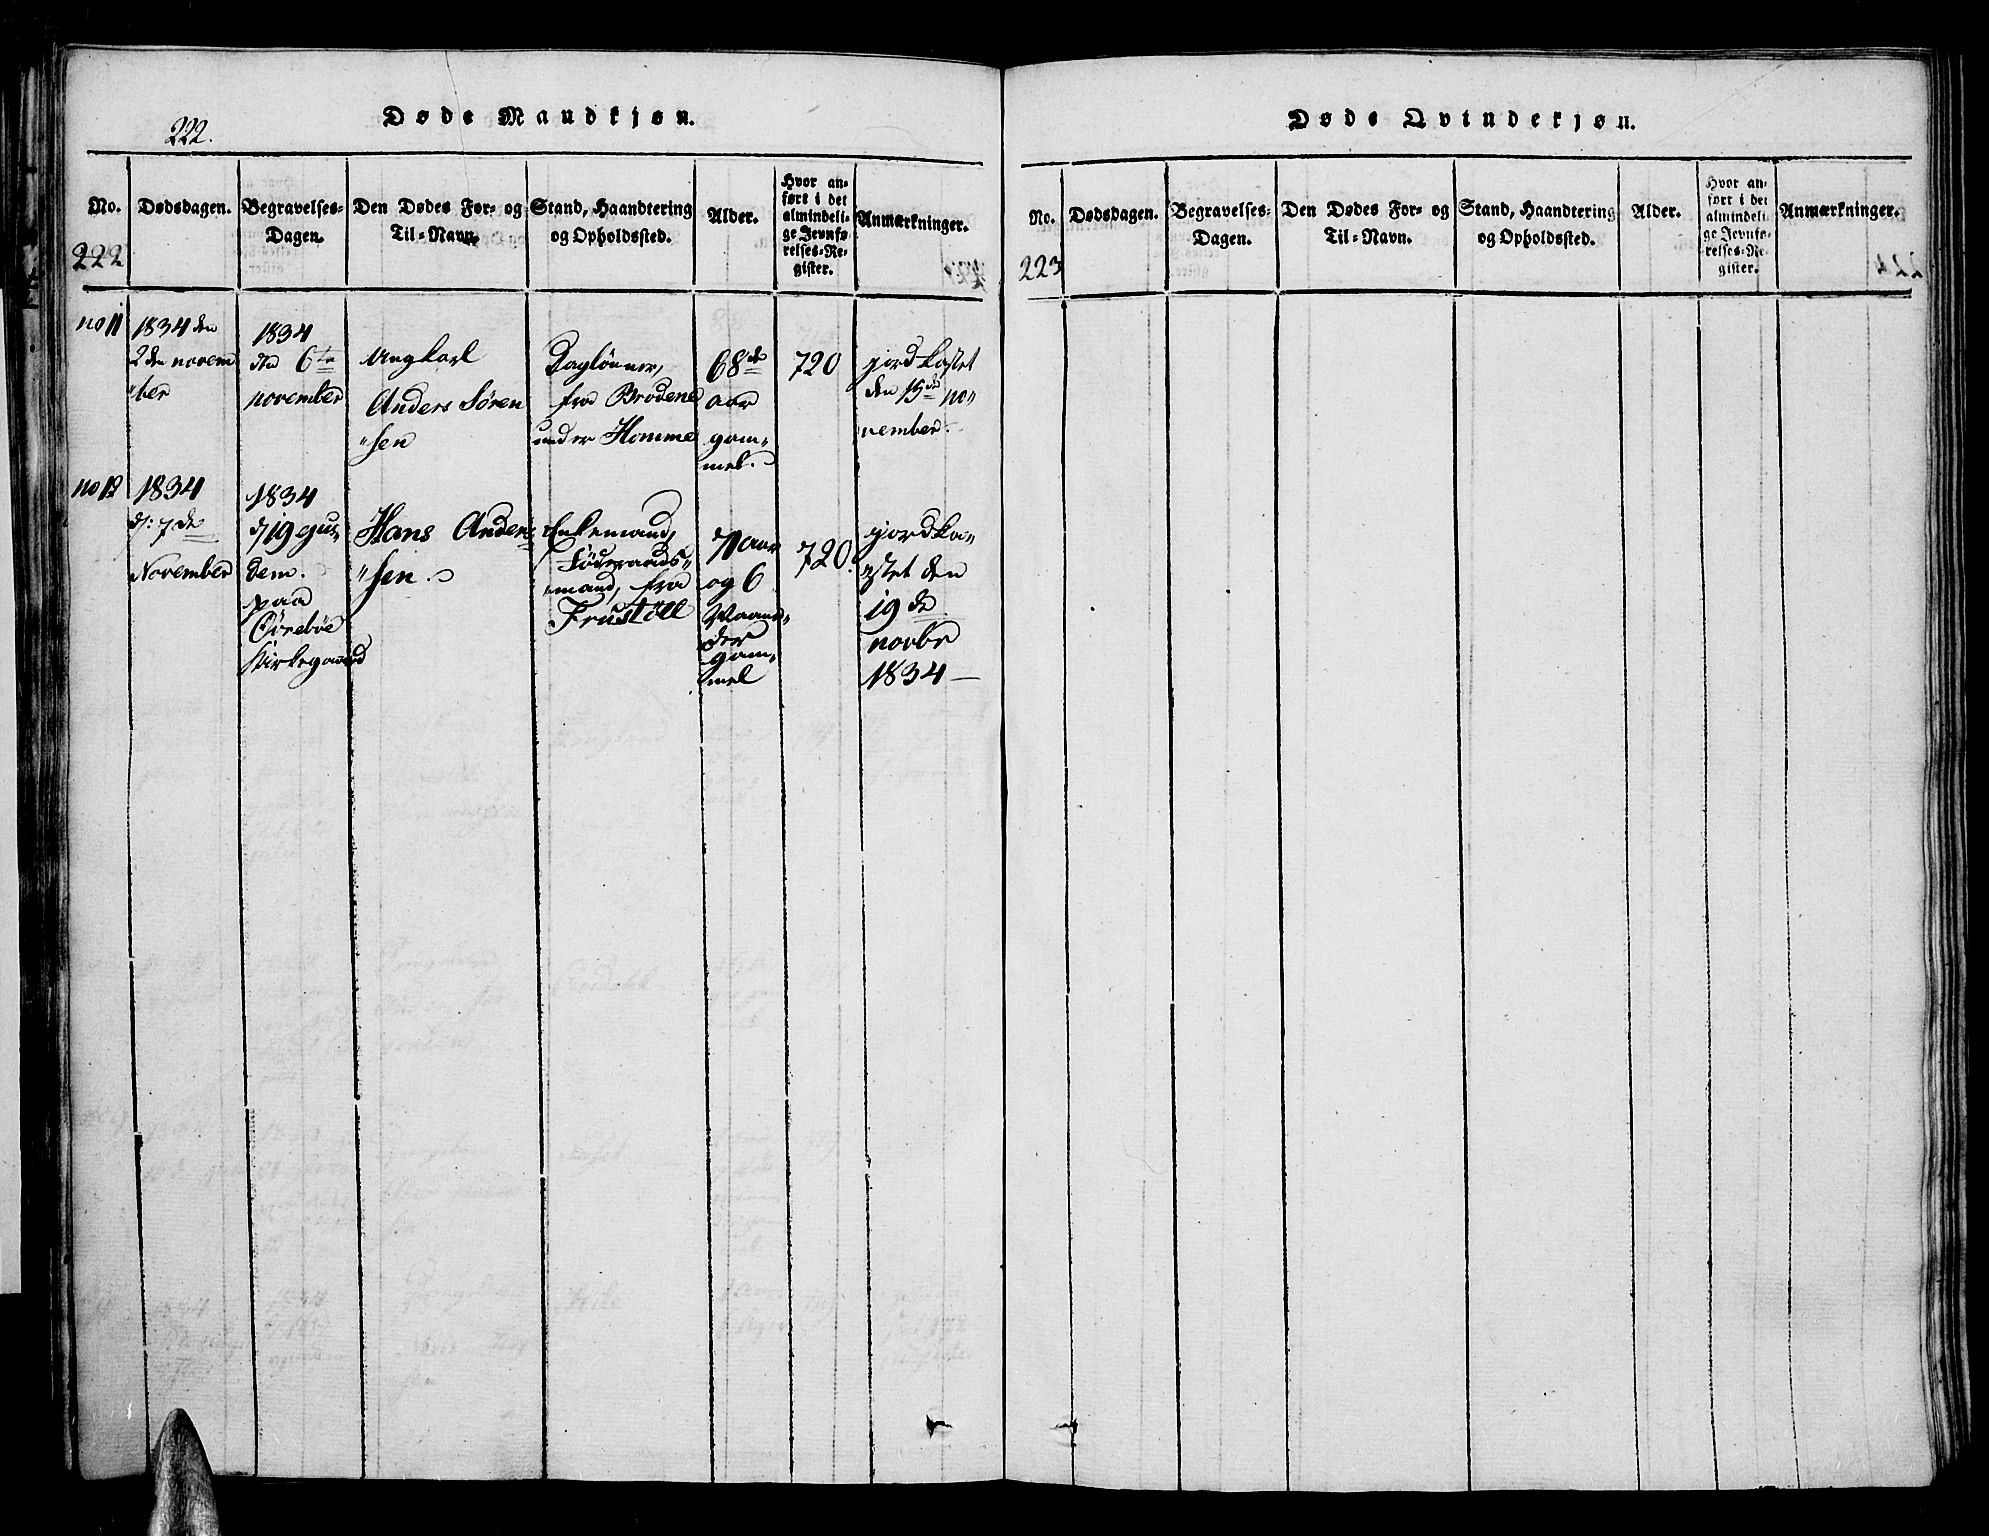 222.
Døde Mandkjøn.
No.
222
Dødsdagen.
Begravelses-
Dagen.
Den Dødes For- og
Til-Navn.
Stand, Haandtering
og Opholdssted.
Alder.
Hvor an-
ført i det
almindeli-
ge Jevnfø-
relses-Re-
gister.
Anmærkninger.
no 11
1834 den
2 den novem
"ber
1834
den 6te
november
Ungkarl
Anders Sören
"sen
Daglönner,
fra Brødene
under Homme
68de
aar
gam-
mel.
720
jordkastet
den 15de no-
vember.
no 12
1834
d: 7de
November
1834
d 19
dem.
paa
Örebøe
Kirkegaard
Hans Anden-
"sen.
Enkemand,
Föderaads-
mand, fra
Frustöll
71 aar
og 6
Maane-
der
gam-
mel
720.
jordka-
stet den
19 de
novbr
1834 —
Døde Qvindekjøn.
No.
223
Dødsdagen.
Begravelses-
Dagen.
Den Dødes For- og
Til-Navn.
Stand, Haandtering
og Opholdssted.
Alder.
Hvor an-
ført i det
almindeli-
ge Jevnfø-
relses-Re-
gister.
Anmærkninger.